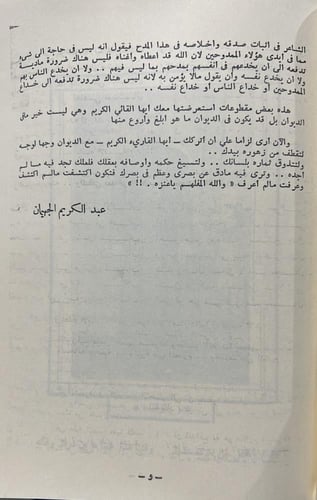 الشاعر فى اثبات صدقه واخلاصه فى هذا المدح فيقول انه ليس فى حاجة الى شىء
مما فى ايدى هؤلاء الممدوحين لان الله قد اعطاه واغناه فليس هناك ضرورة مادية
تدفعه الى ان يخدعهم فى انفسهم بمدحهم بما ليس فيهم . . ولا ان يخدع الناس بهم
ولا ان يخدع نفسه وان يقول مالا يؤمن به لانه ليس هناك ضرورة تدفعه الى خداع
الممدوحين أو خداع الناس أو خداع نفسه . .
هذه بعض مقطوعات استعرضتها معك أيها القالي الكريم وهي ليست خير مافى
الديوان بل قد يكون فى الديوان ما هو ابلغ وأروع منها
والآن أرى لزاما علي ان اتركك - أيها القاريء الكريم - مع الديوان وجها لوجه
لتقطف من زهوره بيدك . .
ولتتذوق ثماره بلسانك . . ولتسيغ حكمه واوصافه بعقلك فلعلك تجد فيه ما لم
أجده . . وترى فيه مادق عن بصرى وعظم فى بصرك فتكون اكتشفت مالم اكتشف
وعرفت مالم أعرف « والله الملهم باعتزه . !! »
عبد الكريم الجهيمان
- و -